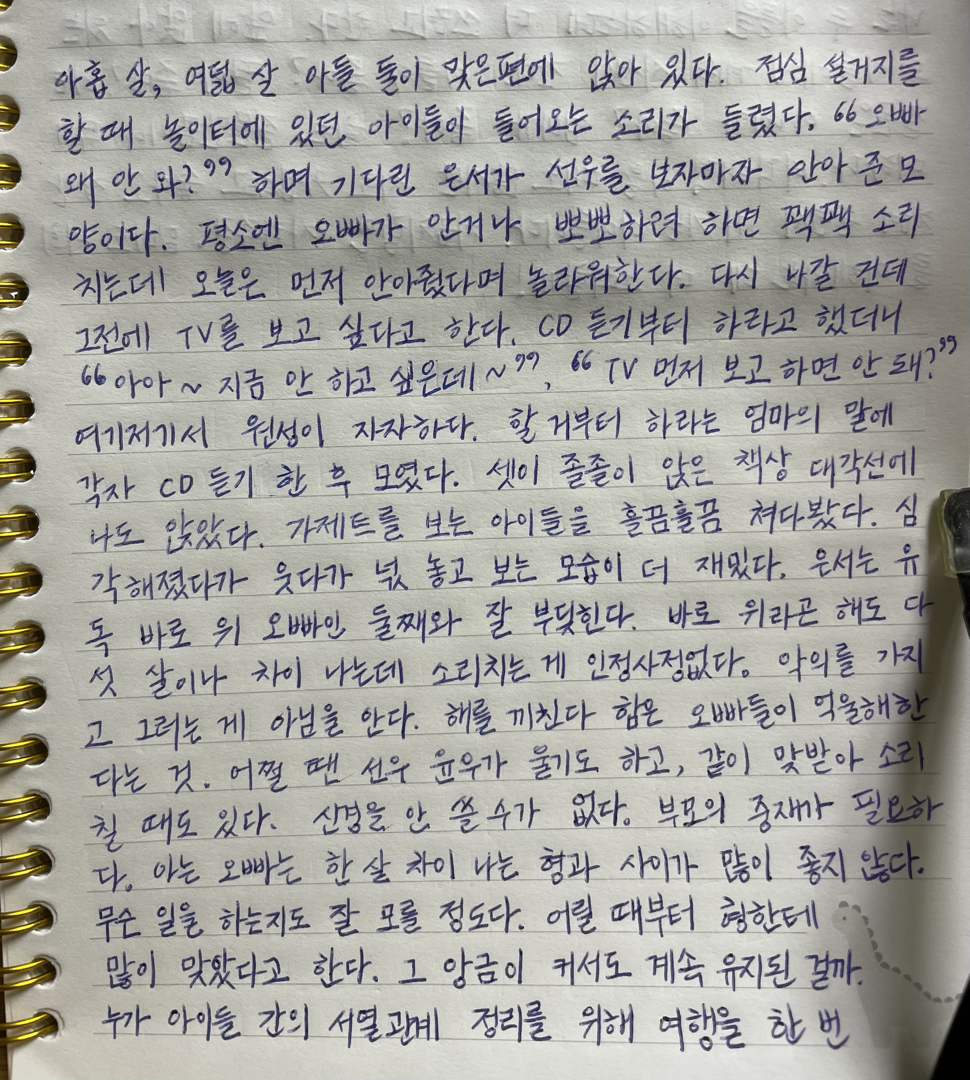 아홉 살, 여덟 살 아들 둘이 맞은편에 앉아 있다. 점심 설거지를
할 때 놀이터에 있던 아이들이 들어오는 소리가 들렸다. “오빠
왜 안 와?” 하며 기다린 은서가 선우를 보자마자 안아 준 모
양이다. 평소엔 오빠가 안거나 뽀뽀하려 하면 꽥꽥 소리
치는데 오늘은 먼저 안아줬다며 놀라워한다. 다시 나갈 건데
그전에 TV를 보고 싶다고 한다. CD 듣기부터 하라고 했더니
“아아~ 지금 안 하고 싶은데~”, “TV 먼저 보고 하면 안 돼?”
여기저기서 원성이 자자하다. 할 거부터 하라는 엄마의 말에
각자 CD 듣기 한 후 모였다. 셋이 졸졸이 앉은 책상 대각선에
나도 앉았다. 가제트를 보는 아이들을 흘끔흘끔 쳐다봤다. 심
각해졌다가 웃다가 넋 놓고 보는 모습이 더 재밌다. 은서는 유
독 바로 위 오빠인 둘째와 잘 부딪힌다. 바로 위라곤 해도 다
섯 살이나 차이 나는데 소리치는 게 인정사정없다. 악의를 가지
고 그러는 게 아님을 안다. 해를 끼친다 함은 오빠들이 억울해한
다는 것. 어쩔 땐 선우 윤우가 울기도 하고, 같이 맞받아 소리
칠 때도 있다. 신경을 안 쓸 수가 없다. 부모의 중재가 필요하
다. 아는 오빠는 한 살 차이 나는 형과 사이가 많이 좋지 않다.
무슨 일을 하는지도 잘 모를 정도다. 어릴 때부터 형한테
많이 맞았다고 한다. 그 앙금이 커서도 계속 유지된 걸까.
누가 아이들 간의 서열관계 정리를 위해 여행을 한 번